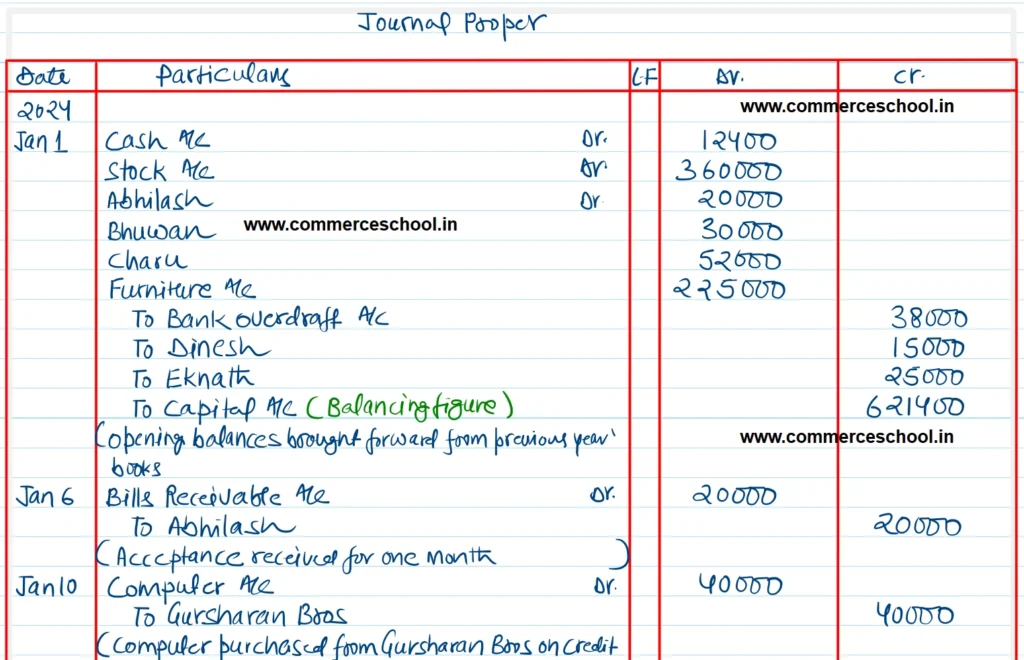 Journal Proper
Date Particulars L.F Dr. Cr.
2024 www.commerceschool.in
Jan 1 Cash A/c Dr. 12400
Stock A/c Dr. 360000
Abhilash Dr. 20000
Bhuwan www.commerceschool.in 30000
Charu 52000
Furniture A/c 225000
To Bank overdraff A/c 38000
To Dinesh 15000
To Eknath 25000
To Capital A/c (Balancing figure) 621400
(opening balances brought forward from previous year' www.commerceschool.in
books
Jan 6 Bills Receivable A/c Dr. 20000
To Abhilash 20000
(Acceptance received for one month)
Jan 10 Computer A/c Dr. 40000
To Gursharan Bros 40000
(Computer purchased from Gursharan Bros on credit